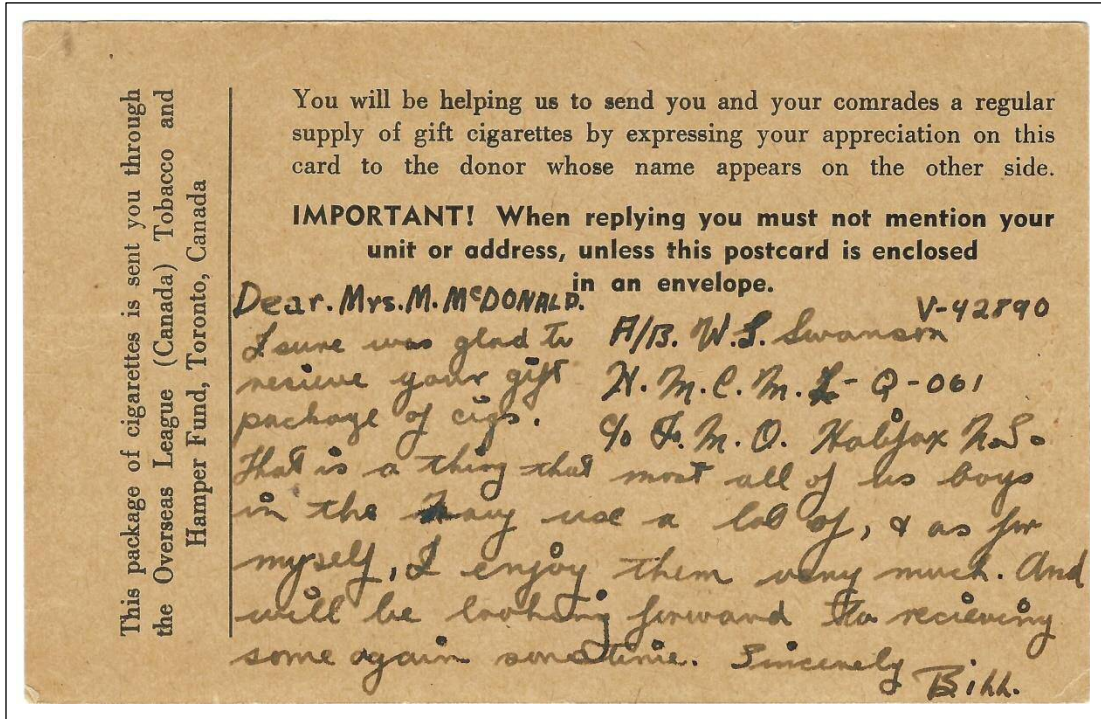 This package of cigarettes is sent you through
the Overseas League (Canada) Tobacco and
Hamper Fund, Toronto, Canada
You will be helping us to send you and your comrades a regular
supply of gift cigarettes by expressing your appreciation on this
card to the donor whose name appears on the other side.
IMPORTANT! When replying you must not mention your
unit or address, unless this postcard is enclosed
in an envelope.
Dear. Mrs. M. McDONALD.
V-42890
A/B. W.S. Swanson
H.M.C.M.L-Q-061
c/o F.M.O. Halifax N.S.
I sure was glad to
resieve your gift
package of cigs.
That is a thing that most all of us boys
in the Navy use a lot of, & as for
myself, I enjoy them very much. And
will be looking forward to recieving
some again sometime. Sincerely
Bill.